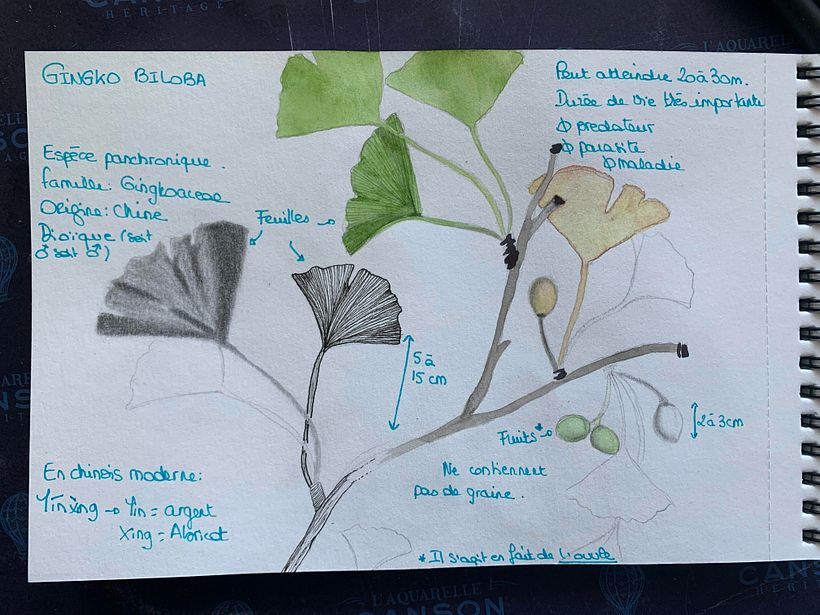 GINGKO BILOBA
Espèce panchronique.
famille: Gingkoaceae
Origine: Chine
Dioïque (soit
♂ soit ♂)
Feuilles
Peut atteindre 20 à 30m.
Durée de vie très importante
∅ predateur
∅ parasite
∅ maladie
5 à
15 cm
Fruits*
2 à 3cm
Ne contiennent
pas de graine.
En chinois moderne:
Yínxìng → Yin = argent
Xing = Abricot
* Il s'agit en fait de l'ovule
L'AQUARELLE
CANSON
HÉRITAGE